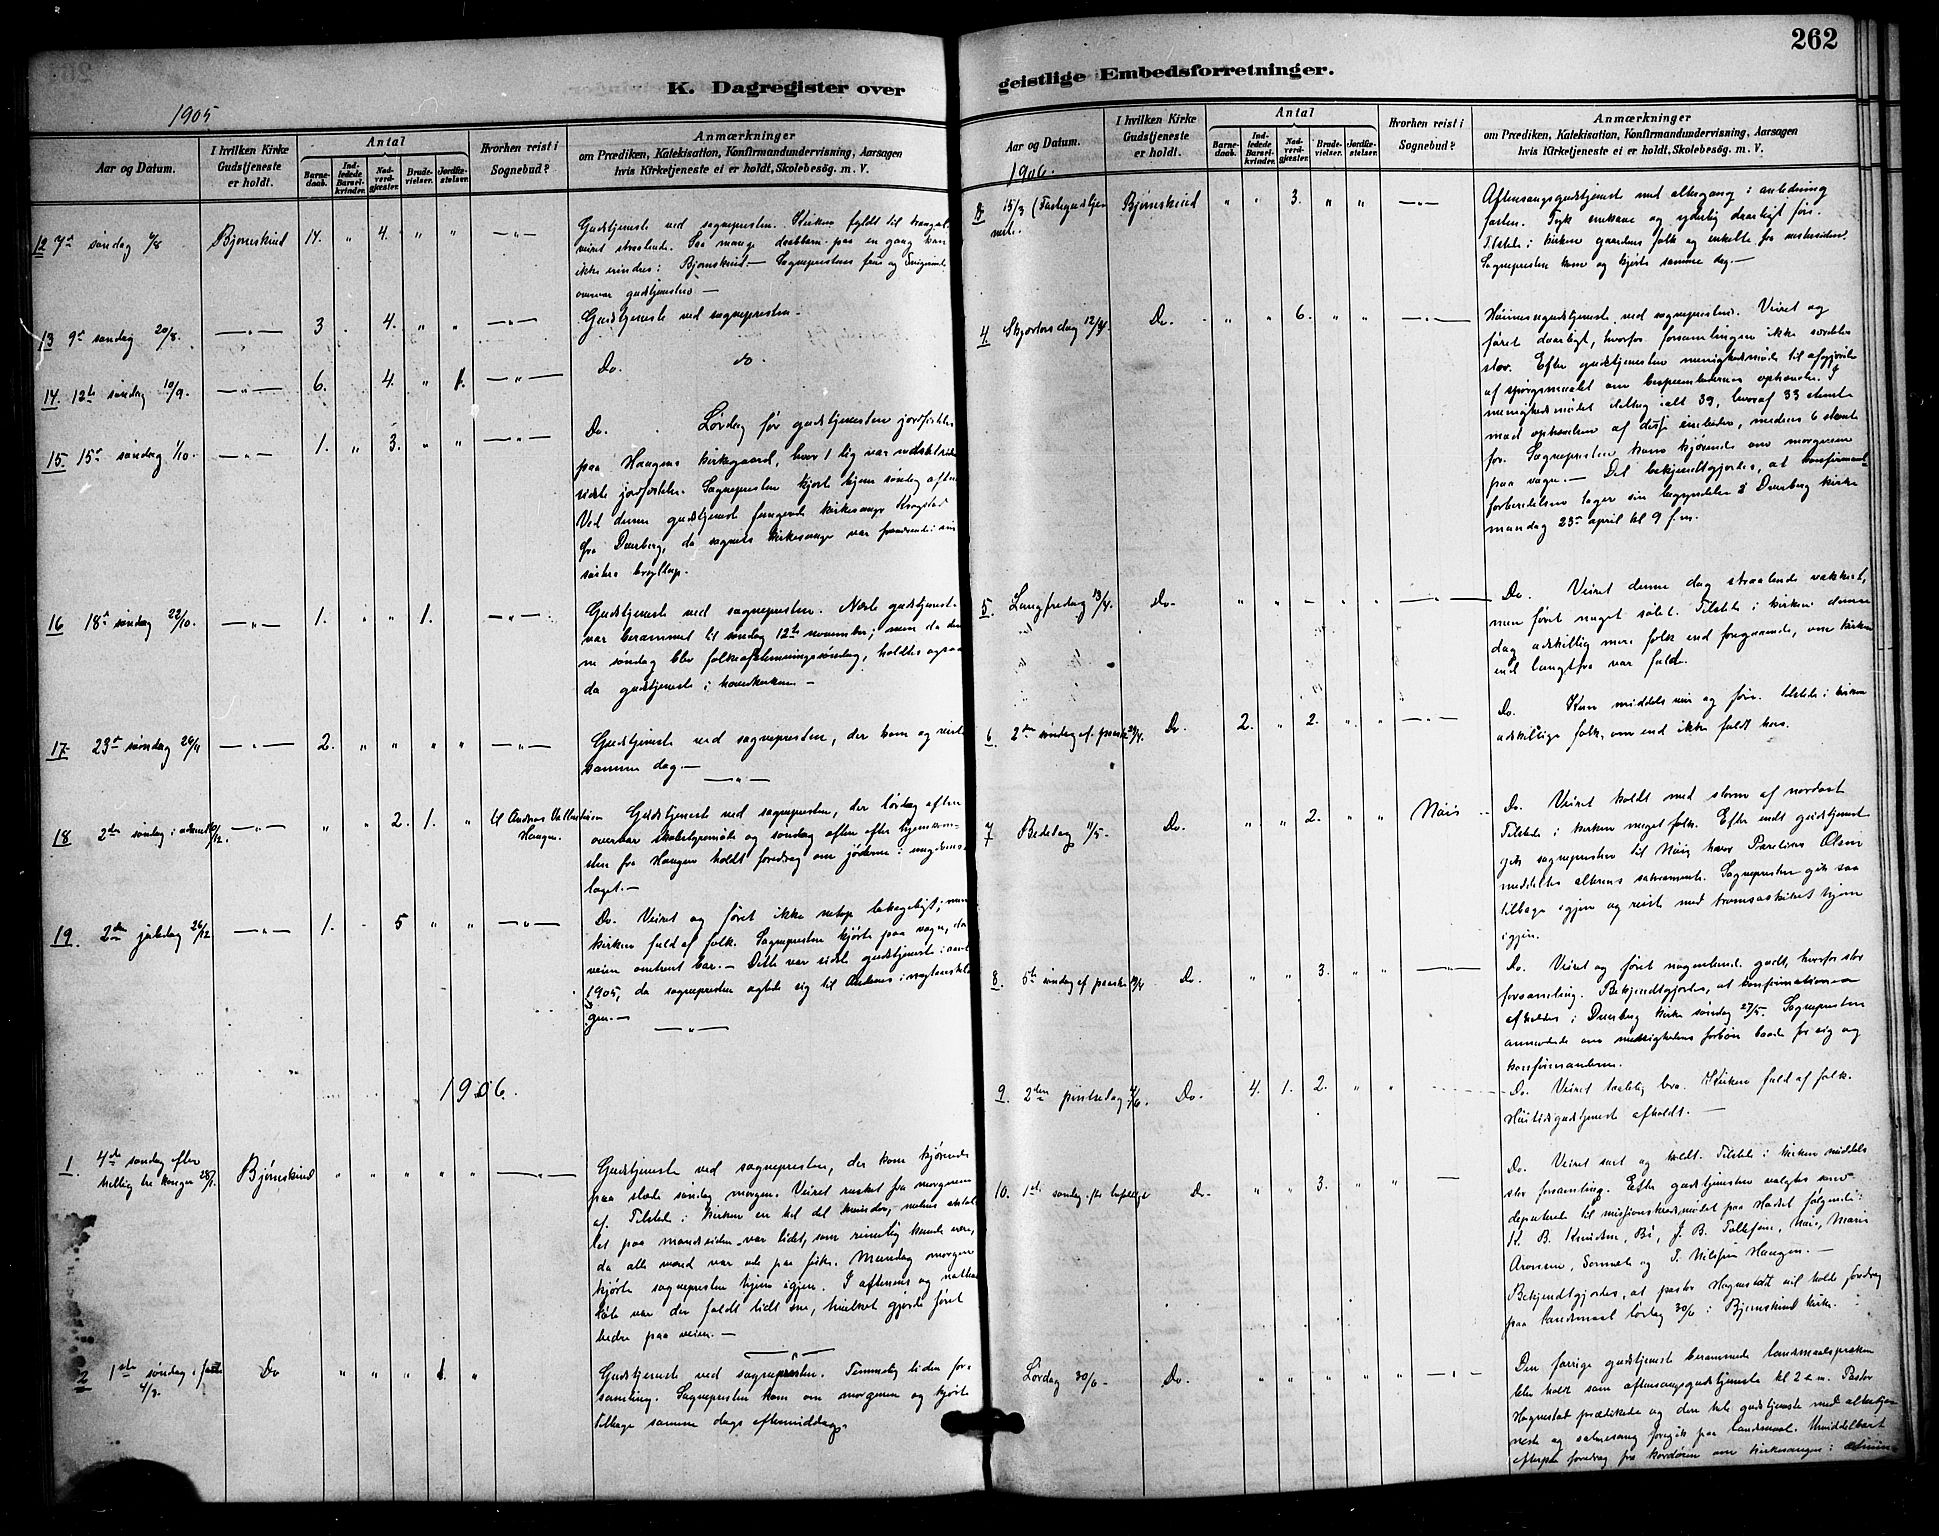 262
K. Dagregister over
geistlige Embedsforretninger.
1905
Aar og Datum.
I hvilken Kirke Gudstjeneste er holdt.
Antal
Barnedaab.
Indledede Barselkvinder.
Nadverdgjester.
Brudevielser.
Jordfæstelser.
Hvorhen reist i Sognebud?
Anmærkninger
om Prædiken, Katekisation, Konfirmandundervisning, Aarsagen
hvis Kirketjeneste ei er holdt, Skolebesøg. m. V.
12 7de søndag 6/8 Bjørnskind 14. " 4. " " —"—
Gudstjeneste ved sognepresten. Kirken fyldt til trængsel
veiret straalende. Saa mange daabbarn paa en gang kan
ikke erindres i Bjørnskind — Sogneprestens frue og
overvar gudstjenesten —
13 9de søndag 20/8. —"— 3 . 4. " " —"— Gudstjeneste ved sognepresten.
14. 12te søndag 10/9. —"— 6. 4. " 1. —"— Do. do.
15. 15de søndag 1/10. —"— 1. " 3. " " —"—
Do. Lørdag før gudstjenesten jordfæstelse
paa Haugnes kirkegaard, hvor 1 lig var
sidste jordfæstelse. Sognepresten kjørte hjem søndag aften
Ved denne gudstjeneste fungerede kirkesanger Krogstad
fra Dverberg, da sognets kirkesanger var fraværende i sin
søsters bryllup.
16 18de søndag 22/10. —"— 1. " " 1. " —"—
Gudstjeneste ved sognepresten. Næste gudstjeneste
var berammet til søndag 12te november; men da den
ne søndag blev folkeafstemningssøndag, holdtes ogsaa
da gudstjeneste i hovedkirken —
17 23de søndag 26/11 —"— 2. " " " " —"—
Gudstjeneste ved sognepresten, der kom og reiste
samme dag —
—"—
18 2den søndag i advent 10/12. —"— " " 2. 1. " til Andreas
Haugen.
Gudstjeneste ved sognepresten, der lørdag aften
overvar skolestyremøte og søndag aften efter hjemkom-
sten fra Haugen holdt foredrag om jøderne i ungdoms-
laget.—
19. 2den juledag 26/12 —"— 1. . 5 " " —"—
Do. Veiret og føret ikke netop behageligt; men
kirken fuld af folk. Sognepresten kjørte paa vogn, da
veien omtrent bar. — Dette var sidste gudstjeneste i aaret
1905, da sognepresten agtede sig til Andenes i nytaarshel-
gen.—
—"—
1906.
1. 4de søndag efter
hellig tre konger 28/1. Bjørnskind " " " " " —"—
Gudstjeneste ved sognepresten, der kom kjørende
paa slæde søndag morgen. Veiret rusket fra morgenen
af. Tilstede i kirken en hel del kvinder, medens antal
let paa mandsiden var lidet, som rimelig kunde være,
da alle mænd var ude paa fiske. Mandag morgen
kjørte sognepresten hjem igjen. I aftenens og nattens
løb var der faldt lidt sne, hvilket gjorde føret
bedre paa veien. —
—"—
2 1ste søndag i faste
4/3. Do " " " 1. "
Gudstjeneste ved sognepresten. Temmelig liden for-
samling. Sognepresten kom om morgenen og kjørte
tilbage samme dags eftermiddag.
Aar og Datum.
I hvilken Kirke Gudstjeneste er holdt.
Antal
Barnedaab.
Indledede Barselkvinder.
Nadverdgjester.
Brudevielser.
Jordfæstelser.
Hvorhen reist i Sognebud?
Anmærkninger
om Prædiken, Katekisation, Konfirmandundervisning, Aarsagen
hvis Kirketjeneste ei er holdt, Skolebesøg. m. V.
1906.
3 15/3 (Fastegudstje-
neste. Bjørnskind " " 3. " "
Aftensangsgudstjeneste med altergang i anledning
fasten. Tyk snekave og yderlig daarligt føre.
Tilstede i kirken gaardens folk og enkelte fra
Sognepresten kom og kjørte samme dag.—
4. Skjærtorsdag 12/4. Do. " " 6. " " —"—
Høimessegudstjeneste ved sognepresten. Veiret og
føret daarligt, hvorfor forsamlingen ikke særdeles
stor. Efter gudstjenesten menighedsmøde til afgjørelse
af spørgsmaalet om ophævelse. I
menighedsmødet deltog ialt 39, hvoraf 33 stemte
mod ophævelsen af disse, medens 6 stemte
for. Sognepresten kom kjørende om morgenen
paa vogn. — Det bekjendtgjordes, at konfirmant-
forberedelsen tager sin begyndelse i Dverberg kirke
mandag 23de april kl 9 f.m.
5. Langfredag 13/4. Do. " " — " " —"—
Do. Veiret denne dag straalende vakkert,
men føret noget sølet. Tilstede i kirken denne
dag adskillig mere folk end foregaaende, om kirken
end langtfra var fuld.
6 2den søndag ef. paaske 29/4. Do. 2. " 2. " " —"—
Do. Kun middels veir og føre. Tilstede i kirken
adskillige folk, om end ikke fuldt hus.
7 Bededag 11/5. Do. " " 2. " " Nøis
Do. Veiret koldt med storm af nordost
Tilstede i kirken meget folk. Efter endt gudstjeneste
gik sognepresten til Nøis hvor Olsen
meddeltes alterens sakramente. Sognepresten gik saa
tilbage igjen og reiste med hjem
igjen.
8. 5te søndag ef. paaske Do. " " 3. " " —"—
Do. Veiret og føret nogenlunde godt, hvorfor stor
forsamling. Bekjendtgjordes, at konfirmationen
afholdes i Dverberg kirke søndag 27/5. Sognepresten
anmodede om menighedens forbøn baade for sig og
konfirmanterne.
9. 2den pinsedag 4/6. Do. 4. 1. 2. " "
Do. Veiret taalelig bra. Kirken fuld af folk.
Høitidsgudstjeneste afholdt. —
10. 1ste søndag Do. " " 3. " " —
Do. Veiret surt og koldt. Tilstede i kirken middels
stor forsamling. Efter gudstjenesten valgtes som
deputerede til missionskredsmødet paa følgende:
K. B. Knudsen, Bø, J. B. Tollefsen, Nøis, Marie
Aronsen, og T. Nilssen Haugen. —
Bekjendtgjordes, at pastor Hognestad vil holde foredrag
paa landsmaal lørdag 30/6 i Bjørnskind kirke.
Lørdag 30/6 — Do. " " " " " —"—
Den forrige gudstjeneste berammede landsmaalspræken
blev holdt som aftensangsgudstjeneste kl 2 e.m. Pastor
Hognestad prædikede og den hele gudstjeneste med altertje-
neste og salmesang foregik paa landsmaal. Umiddelbart
efterpaa foredrag fra kordøren om kirkesangen i